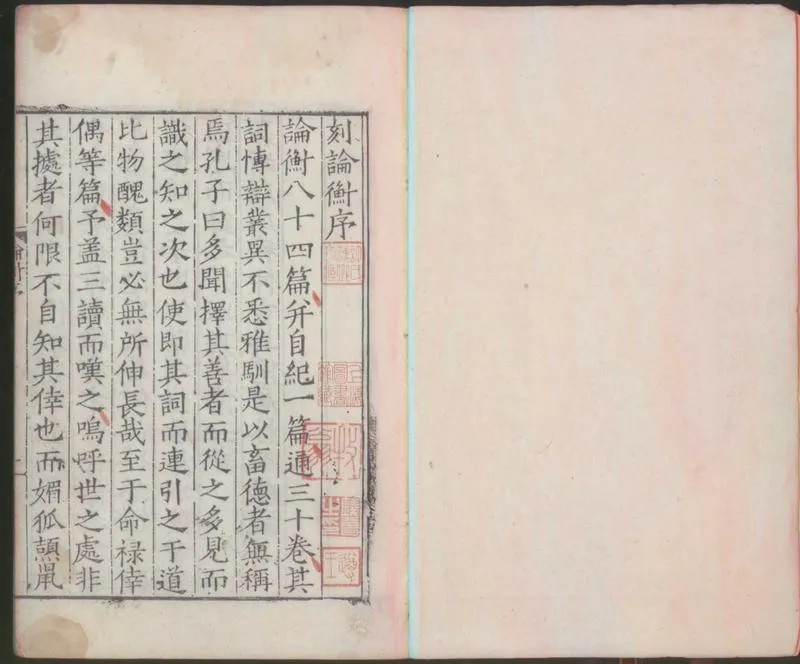 刻論衡序
論衡八十四篇并自紀一篇通三十卷其
詞愽辯叢異不悉雅馴是以畜德者無稱
焉孔子曰多聞擇其善者而從之多見而
識之知之次也使即其詞而連引之于道
比物醜類豈必無所伸長哉至于命祿倖
偶等篇予盖三讀而嘆之嗚呼世之處非
其㩀者何限不自知其倖也而媚狐䫉鼠